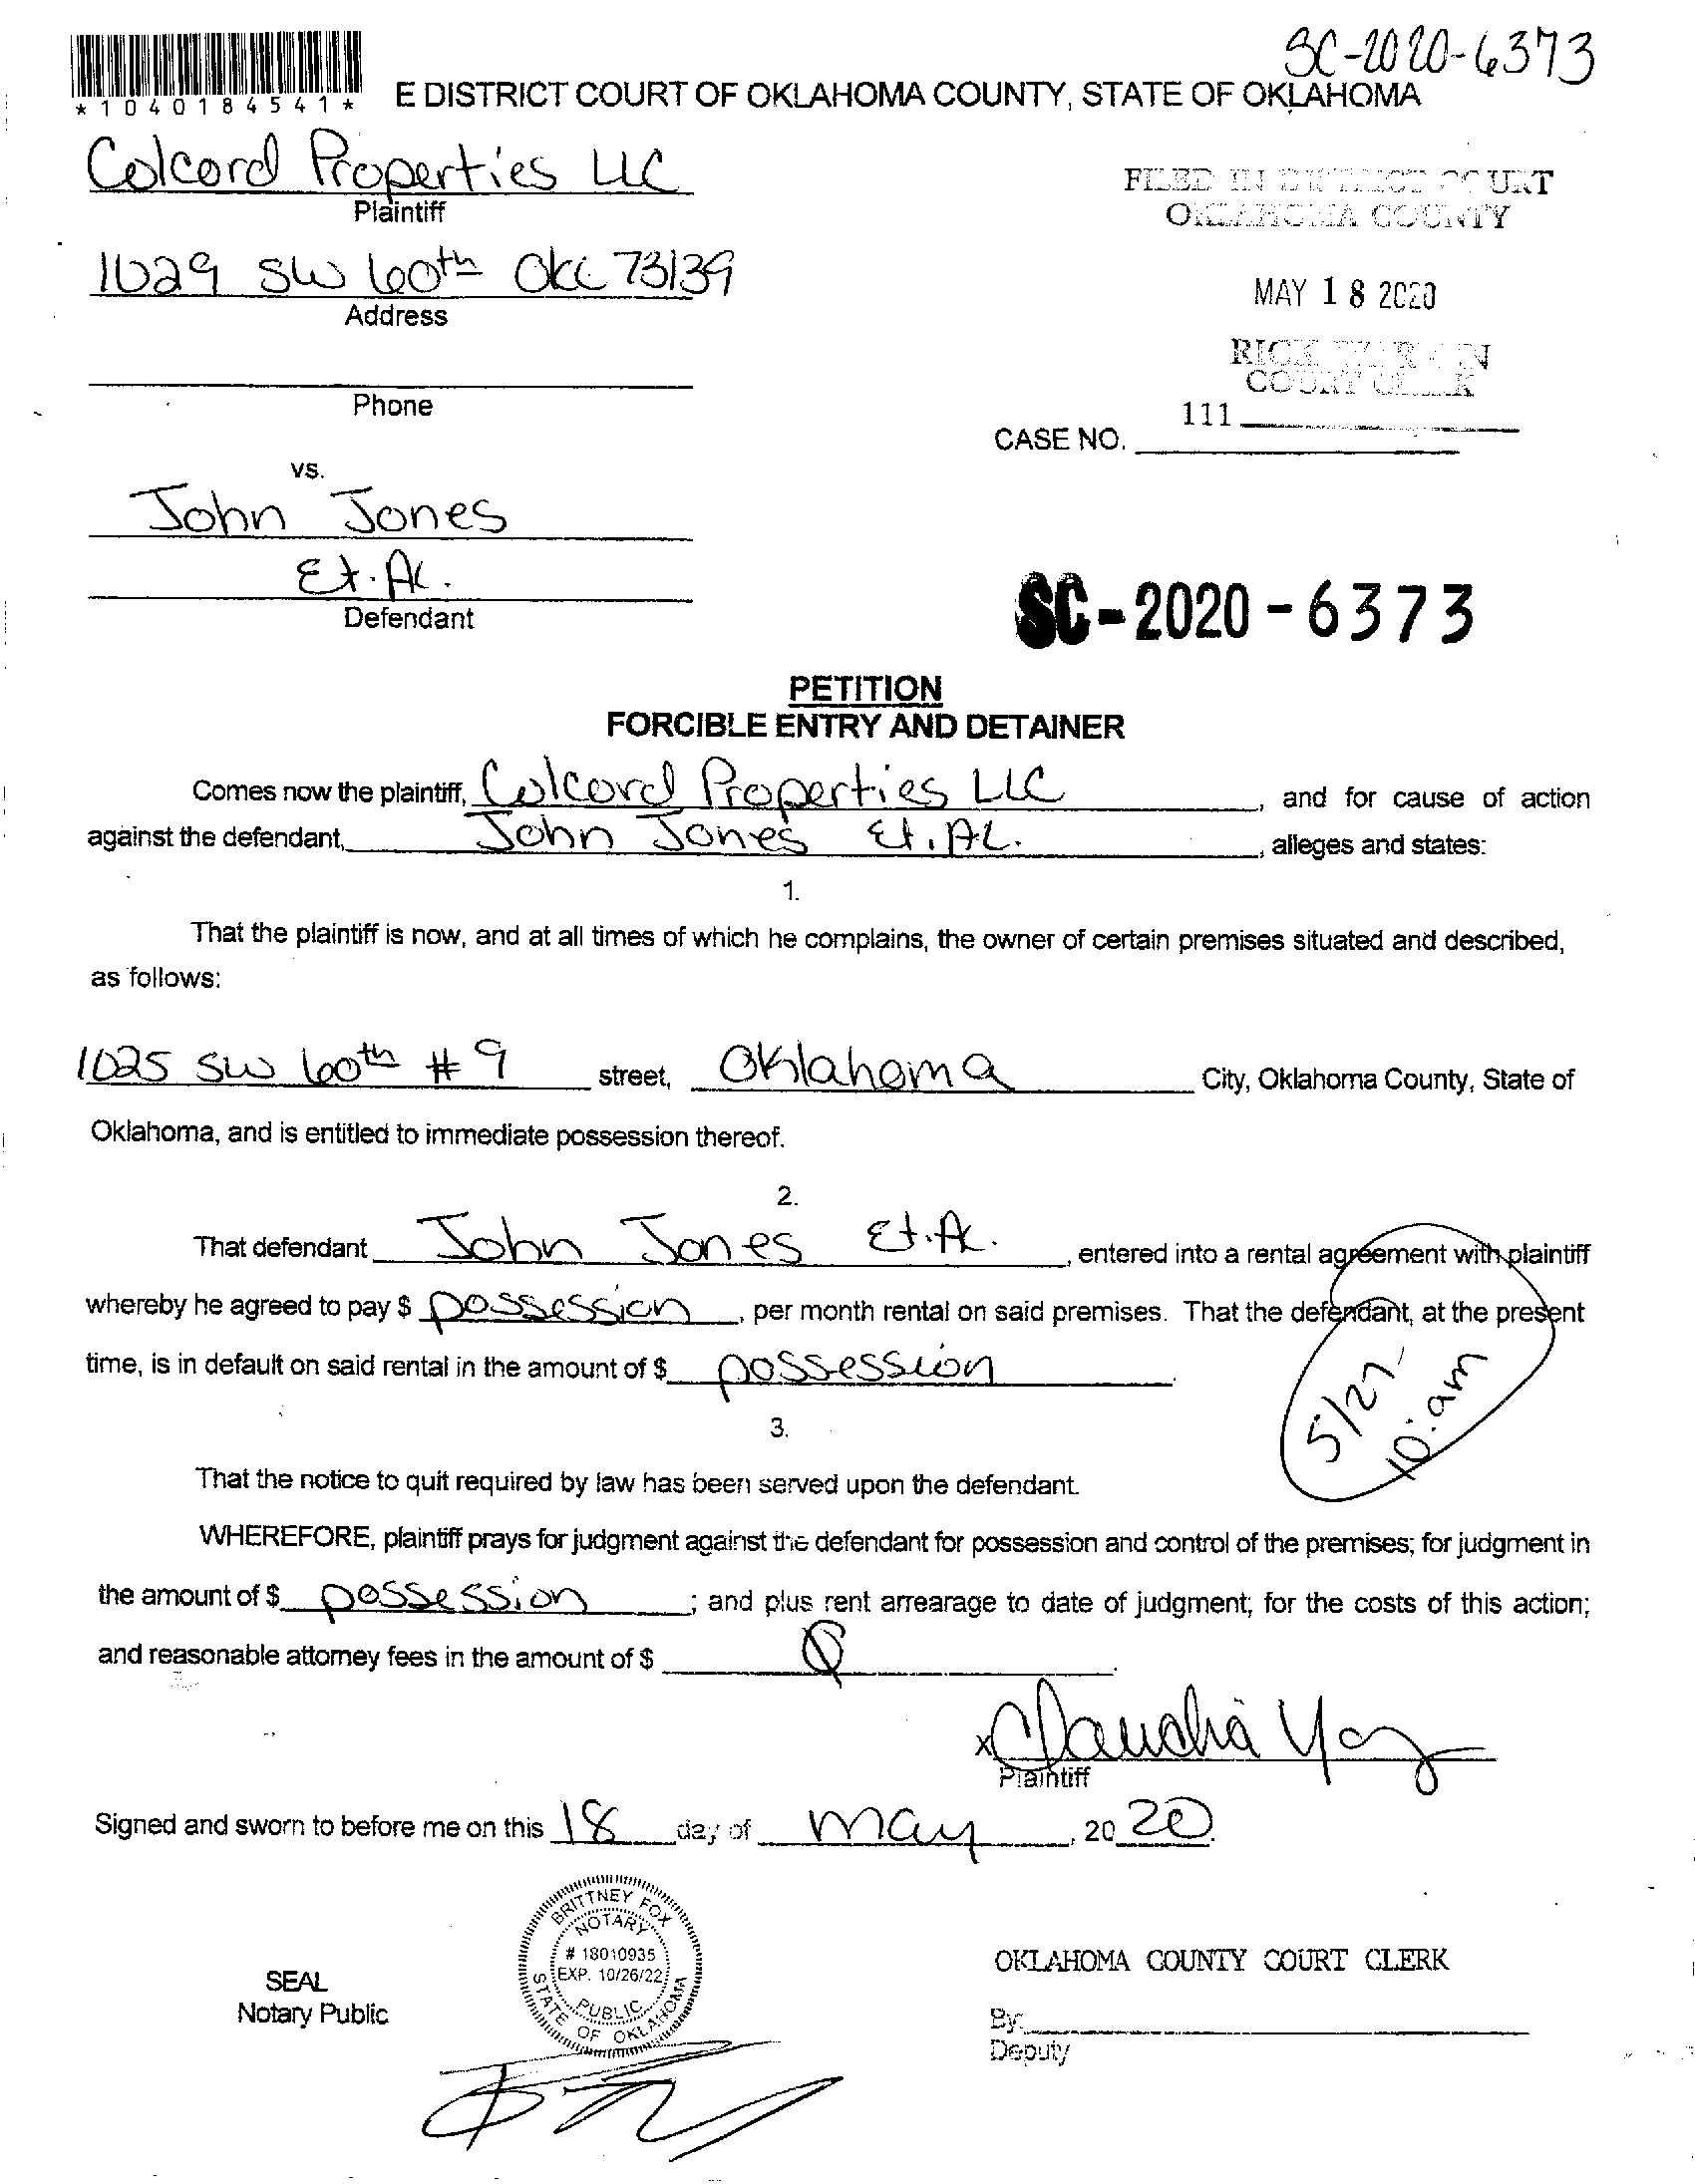 SC-2020-6373
*1040184541*
E DISTRICT COURT OF OKLAHOMA COUNTY, STATE OF OKLAHOMA
Colcord Properties LLC
Plaintiff
FILED IN DISTRICT COURT
OKLAHOMA COUNTY
1029 SW 60th OKC 73139
Address
MAY 18 2020
RICK WARREN
COURT CLERK
Phone
111
CASE NO.
vs.
John Jones
Et. Al.
Defendant
SC-2020-6373
PETITION
FORCIBLE ENTRY AND DETAINER
Comes now the plaintiff, Colcord Properties LLC, and for cause of action
against the defendant, John Jones Et. AL., alleges and states:
1.
That the plaintiff is now, and at all times of which he complains, the owner of certain premises situated and described,
as follows:
1025 SW 60th #9 street, Oklahoma City, Oklahoma County, State of
Oklahoma, and is entitled to immediate possession thereof.
2.
That defendant John Jones Et. Al., entered into a rental agreement with plaintiff
whereby he agreed to pay $ possession, per month rental on said premises. That the defendant, at the present
time, is in default on said rental in the amount of $ possession.
5/27-
10:am
3.
That the notice to quit required by law has been served upon the defendant.
WHEREFORE, plaintiff prays for judgment against the defendant for possession and control of the premises; for judgment in
the amount of $ possession; and plus rent arrearage to date of judgment; for the costs of this action;
and reasonable attorney fees in the amount of $ 0.
x Claudia
Plaintiff
Signed and sworn to before me on this 18 day of May, 2020.
BRITTNEY FOX
NOTARY
# 18010935
EXP. 10/26/22
PUBLIC
STATE OF OKLAHOMA
SEAL
Notary Public
OKLAHOMA COUNTY COURT CLERK
By:
Deputy